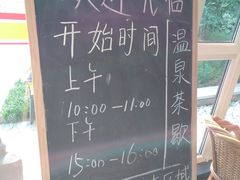 开始时间
上午
10:00-11:00
下午
15:00-16:00
温泉茶歇